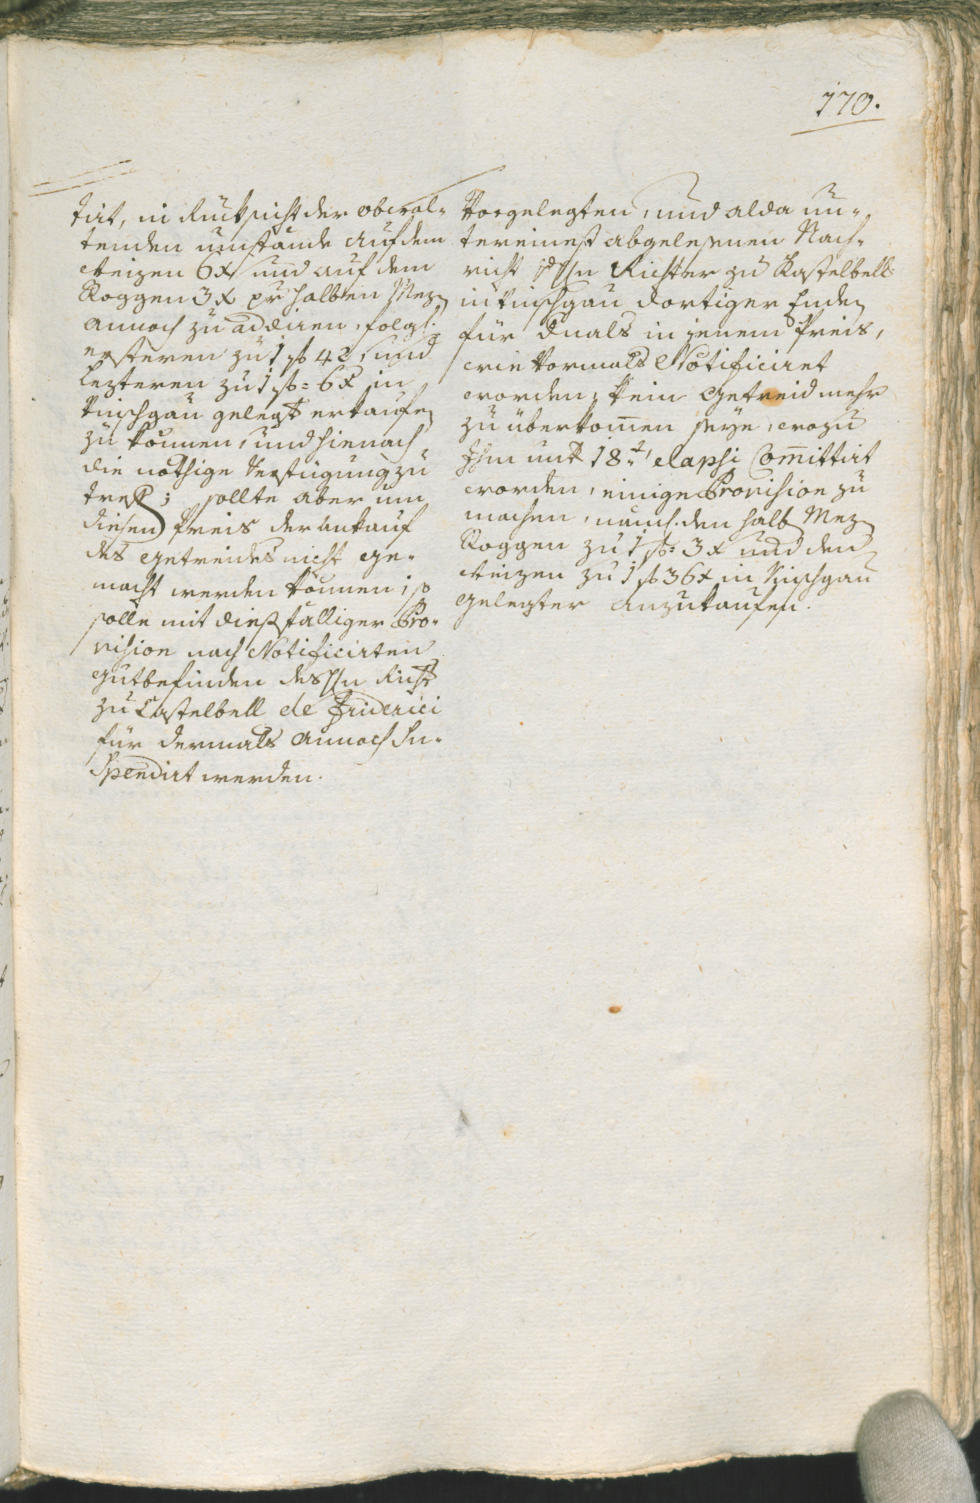 170.
tirt, in Rücksicht der obwal-
tenden umstände auf dem
Weizen 6 x und auf dem
Roggen 3 x pr halben Mez
annoch zu addiren, folgl:
ersteren zu 1 f 42 und
lezteren zu 1 f: 6 x in
Vinschgau gelegt erkaufen
zu können, und hienach
die nöthige Verfügung zu
treff; sollte aber um
diesen Preis der ankauf
des getreides nicht ge-
macht werden können, so
solle mit dießfälliger Pro-
vision nach Notificirten
gutbefinden des Hn Richt
zu Castelbell de Friderici
für dermals annoch Su-
spendirt werden.
Vorgelegten, und alda un-
tereinest abgelesenen Nach-
richt Hn Richter zu Kastelbell
in Vinschgau dortiger Enden
für dermals in jenem Preis,
wie vormals Notificiret
worden, kein getreid mehr
zu überkom̄en seye, wozu
Ihm unt 18t elapsi Com̄ittirt
worden, einige Provision zu
machen, näml. den halb Mez
Roggen zu 1 f: 3 x und den
Weizen zu 1 f 36 x in Vinschgau
gelegter anzukaufen.